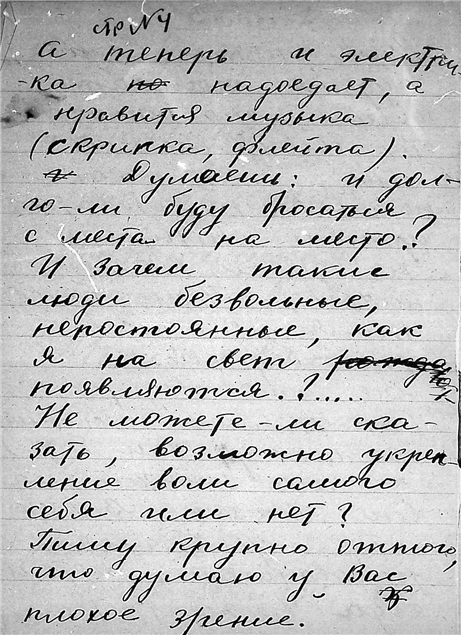 стр №4
а теперь и электри-
-ка но надоедает, а
нравится музыка
(скрипка, флейта).
Думаешь: и дол-
го-ли буду бросаться
с места на место.?
И зачем такие
люди безвольные,
непостоянные, как
я на свет рожда
появляются.?.....
Не можете-ли ска-
зать, возможно укреп-
ление воли самого
себя или нет?
Пишу крупно оттого,
что думаю у Вас
плохое зрение.